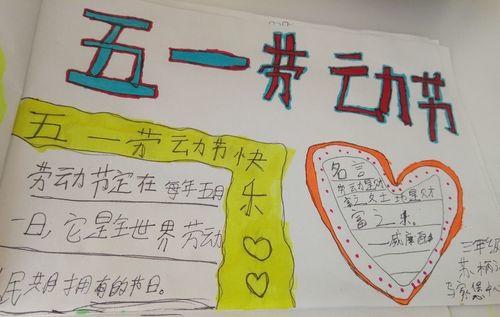 五一劳动节
五一劳动节快乐
劳动节定在每年五月
一日,它是全世界劳动
民共同拥有的节日。
名言
劳动是财
富之父土地是财
富之母。
——威廉配第
三年级
苏